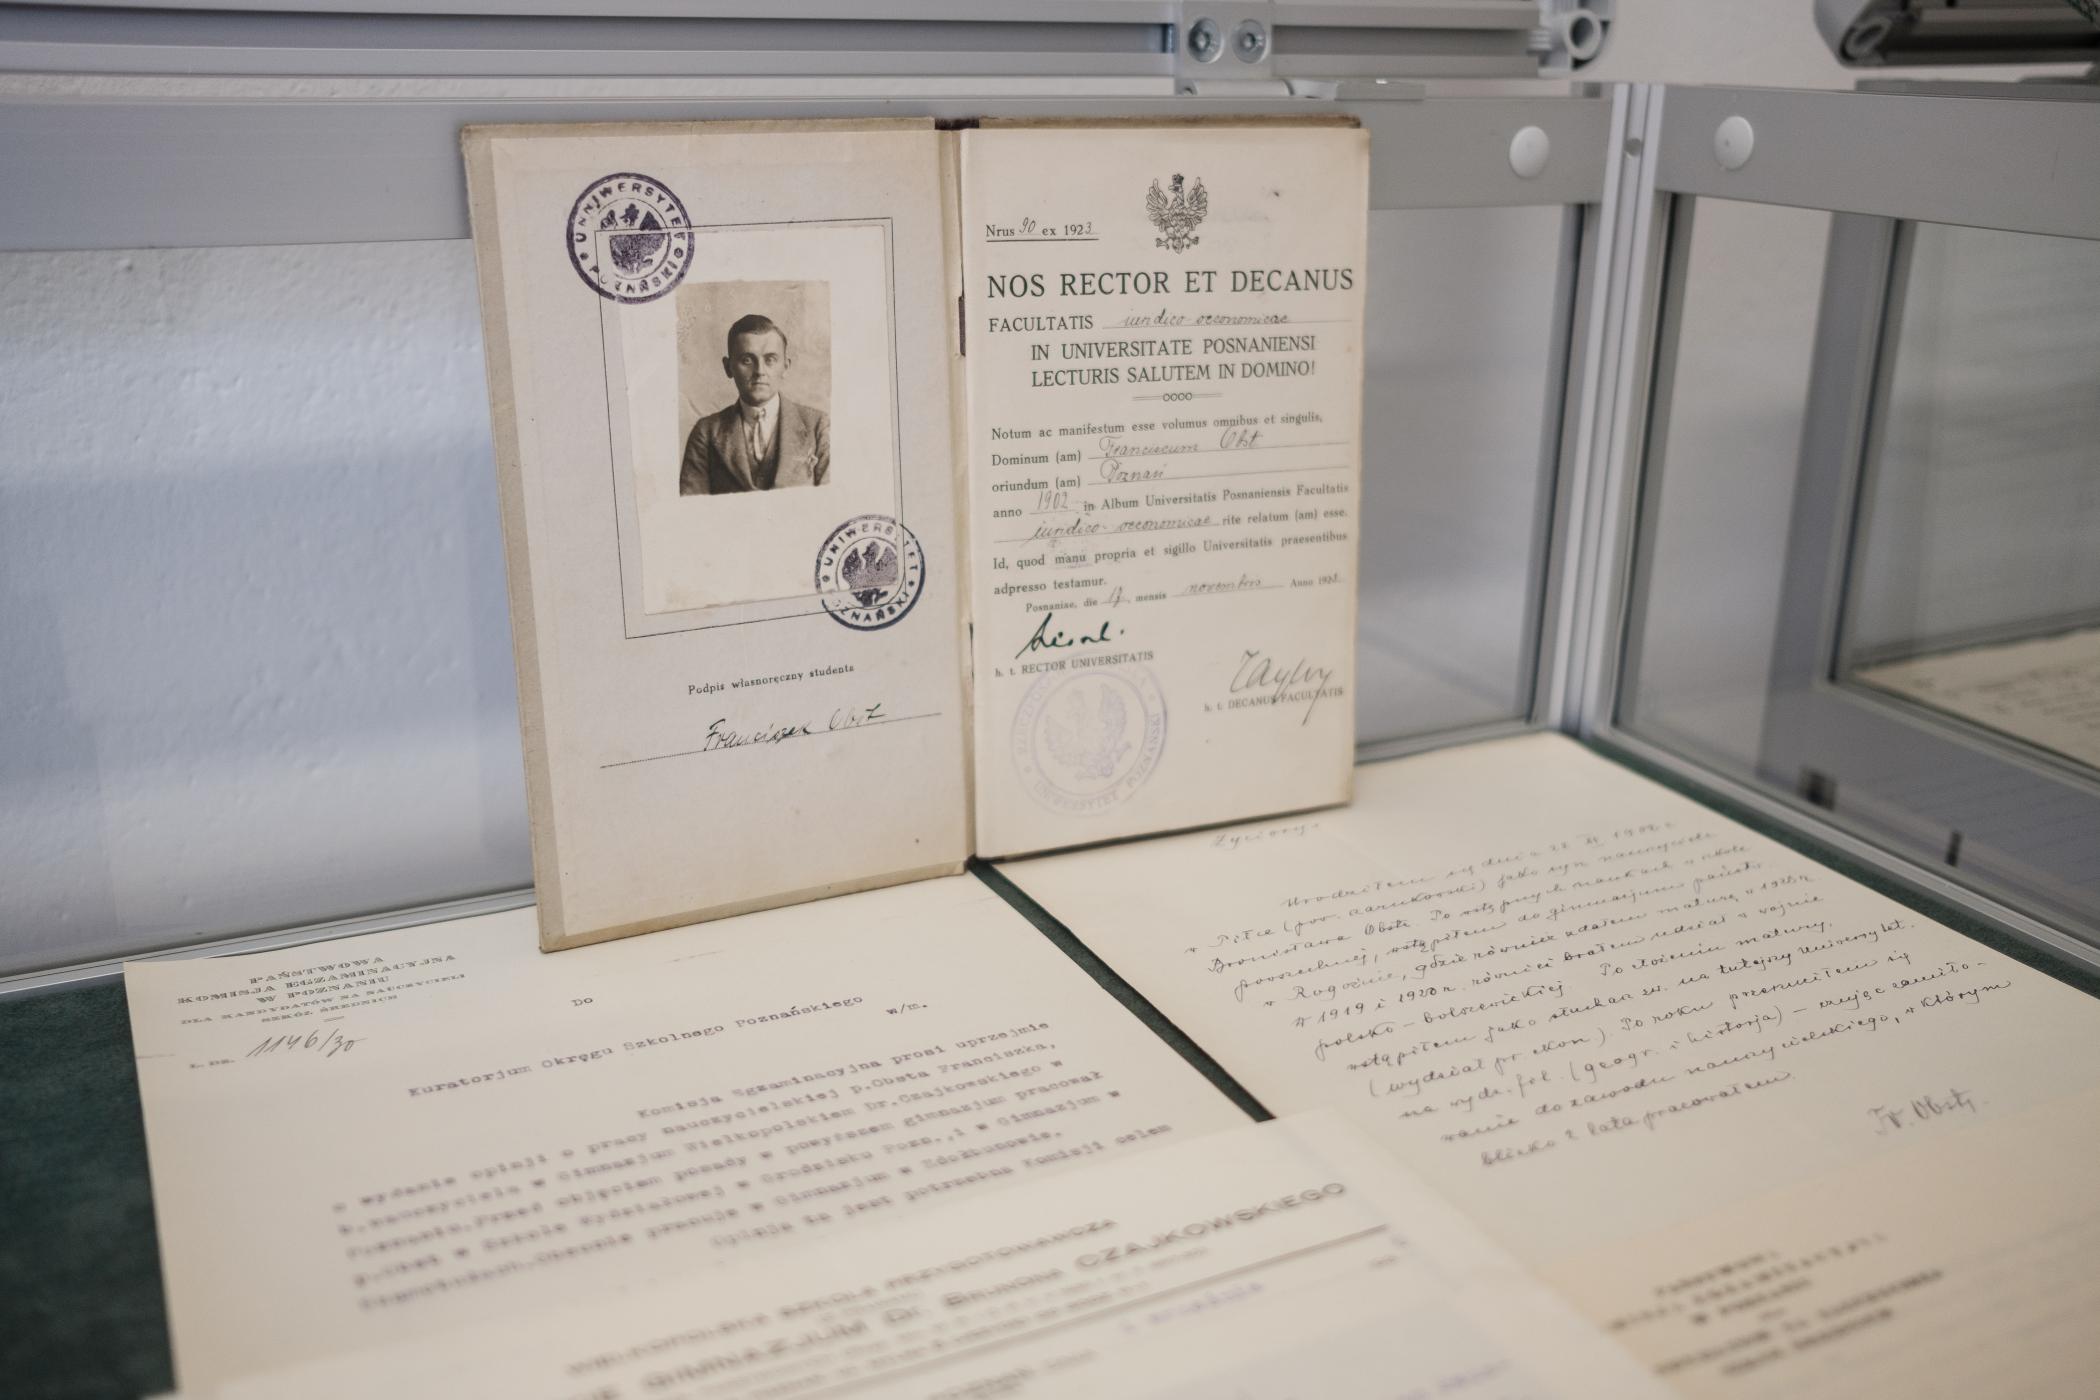 UNIWERSYTET POZNAŃSKI
UNIWERSYTET POZNAŃSKI
Podpis własnoręczny studenta
Franciszek Obst
Nrus 90 ex 1923
NOS RECTOR ET DECANUS
FACULTATIS iuridico-oeconomicae
IN UNIVERSITATE POSNANIENSI
LECTURIS SALUTEM IN DOMINO!
Notum ac manifestum esse volumus omnibus et singulis,
Dominum (am) Franciscum Obst
oriundum (am) Poznań
anno 1902 in Album Universitatis Posnaniensis Facultatis
iuridico-oeconomicae rite relatum (am) esse.
Id, quod manu propria et sigillo Universitatis praesentibus
adpresso testamur.
Posnaniae, die 17 mensis novembris Anno 1923.
h. t. RECTOR UNIVERSITATIS
h. t. DECANUS FACULTATIS
UNIWERSYTET POZNAŃSKI
PAŃSTWOWA
KOMISJA EGZAMINACYJNA
W POZNANIU
DLA KANDYDATÓW NA NAUCZYCIELI
SZKÓŁ ŚREDNICH
L. Dz. 1146/30
Do
Kuratorjum Okręgu Szkolnego Poznańskiego
w/m.
Komisja Egzaminacyjna prosi uprzejmie
o wydanie opinji o pracy nauczycielskiej p.Obsta Franciszka,
b.nauczyciela w Gimnazjum Wielkopolskiem Dr.Czajkowskiego w
Poznaniu.Przed objęciem posady w powyższem gimnazjum pracował
p.Obst w Szkole Wydziałowej w Grodzisku Pozn.,i w Gimnazjum w
obecnie pracuje w Gimnazjum w Zdołbunowie.
Opinja ta jest potrzebna Komisji celem
WIELKOPOLSKA SZKOŁA PRZYGOTOWAWCZA
GIMNAZJUM Dr. BRUNONA CZAJKOWSKIEGO
Życiorys
Urodziłem się dnia 22 XI 1902 r.
w Piłce (pow. czarnkowski) jako syn nauczyciela
Bronisława Obsta. Po wstępnych naukach w szkole
powszechnej, wstąpiłem do gimnazjum państw.
w Rogoźnie, gdzie również zdałem maturę w 1923 r.
W 1919 i 1920 r. również brałem udział w wojnie
polsko-bolszewickiej. Po złożeniu matury,
wstąpiłem jako słuchacz zw. na tutejszy Uniwersytet.
(wydział pr. ekon.). Po roku przerzuciłem się
na wydz. fil. (geogr. i historja) – czując zamiło-
wanie do zawodu nauczycielskiego, w którym
blisko 2 lata pracowałem.
Fr. Obst.